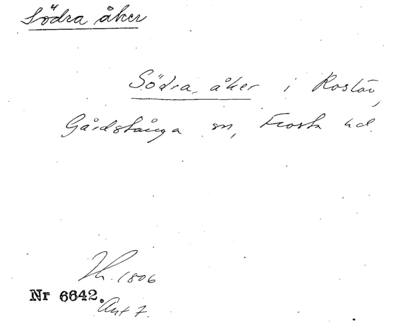 Södra åker
Södra åker i Rostån,
Gårdstånga sn, Frosta hd.
1806
Nr 6642.
Ant 7.